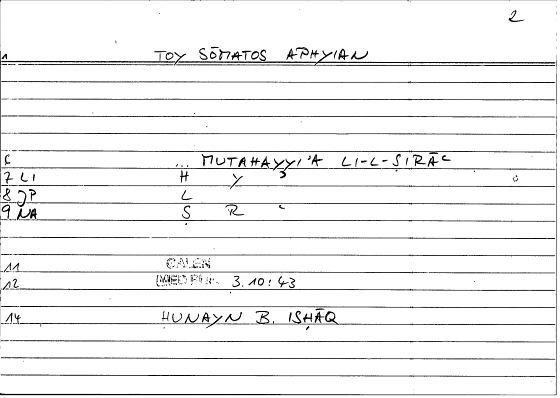 2
1 TOY SŌMATOS APHYIAN
6 ... MUTAHAYYI'A LI-L-ṢIRĀʿ
7 LI H Y ʾ
8 JP L
9 NA Ṣ R ʿ
11 GALEN
12 MED PHIL 3.10:43
14 ḤUNAYN B. ISḤĀQ